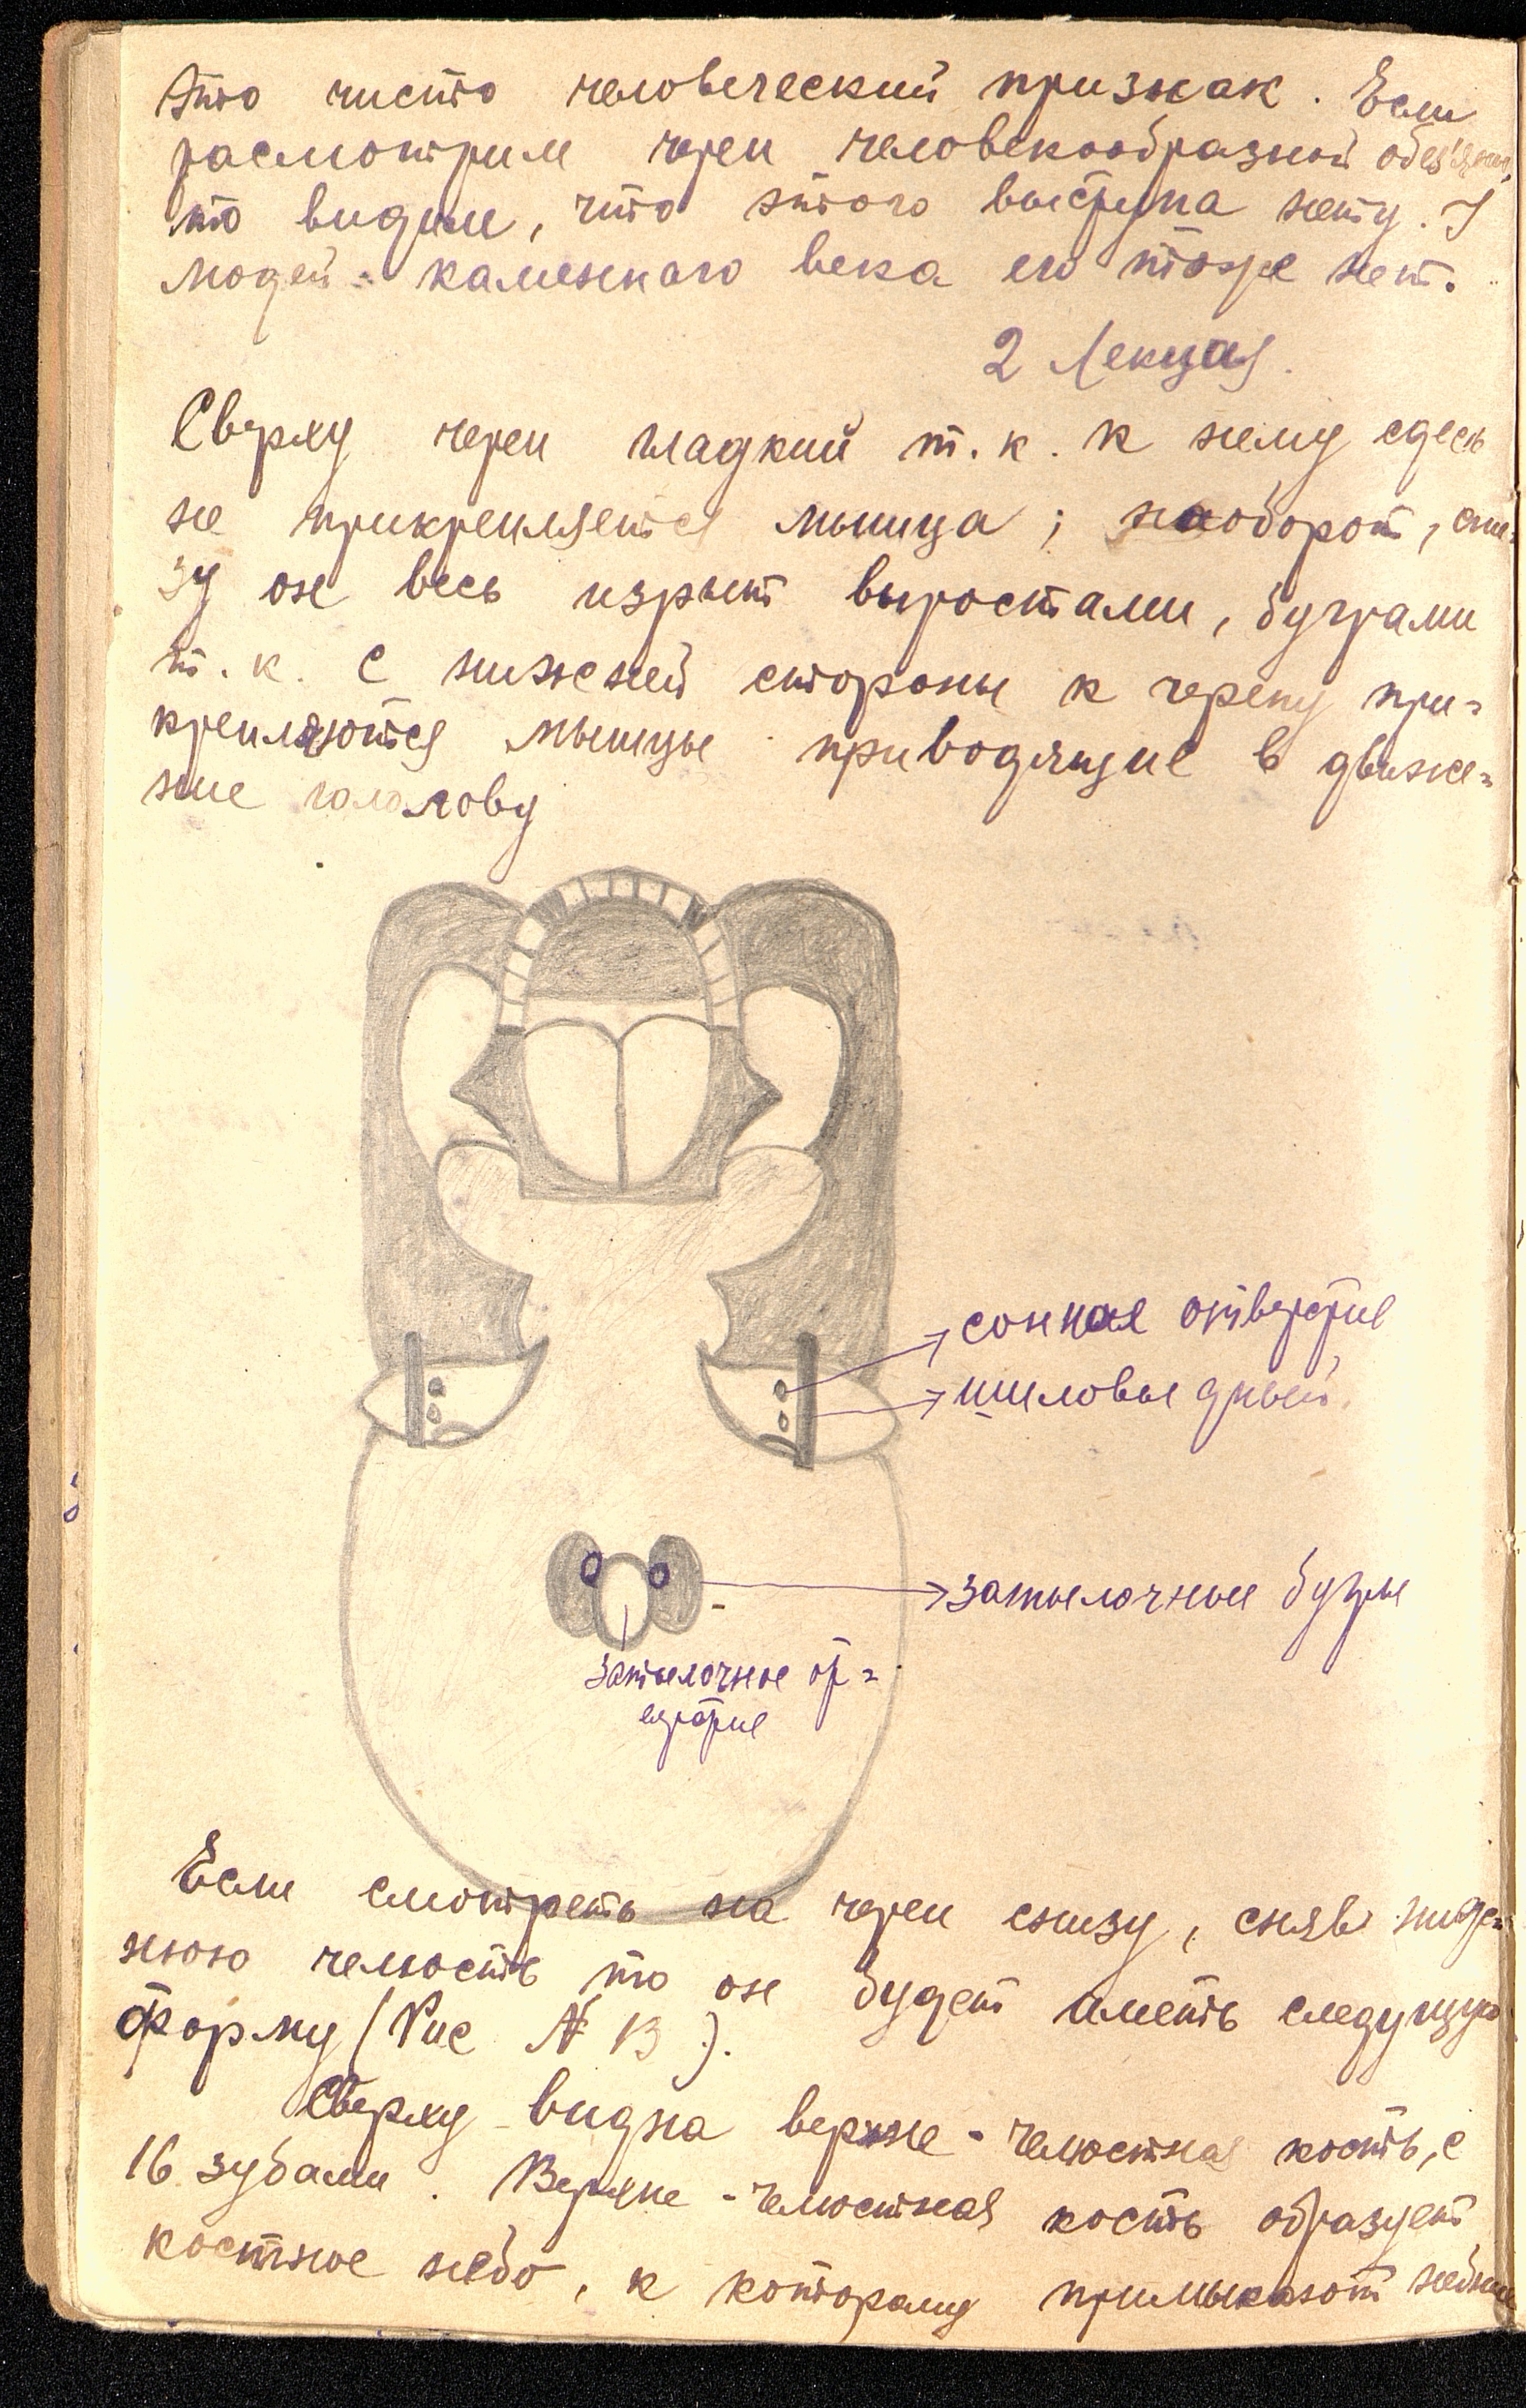 Это чисто человеческий признак. Если
расмотрим череп человекообразной обезьяны,
то видим, что этого выступа нету. У
людей каменного века его тоже нет.
2 Лекция.
Сверху череп гладкий т.к. к нему сдесь
не прикрепляется мышца; наоборот, сни-
зу он весь изрыт выростами, буграми
т.к. с нижней стороны к черепу при-
крепляются мышцы приводящие в движе-
ние голову
сонная отверстие
шиловые
затылочные бугры
затылочное от-
верстие
Если смотреть на череп снизу, сняв ниж-
нюю челюсть то он будет иметь следующую
форму (Рис № 13).
Сверху видна верхне-челюстная кость, с
16 зубами. Верхне-челюстная кость образует
костное небо, к которому примыкают небные